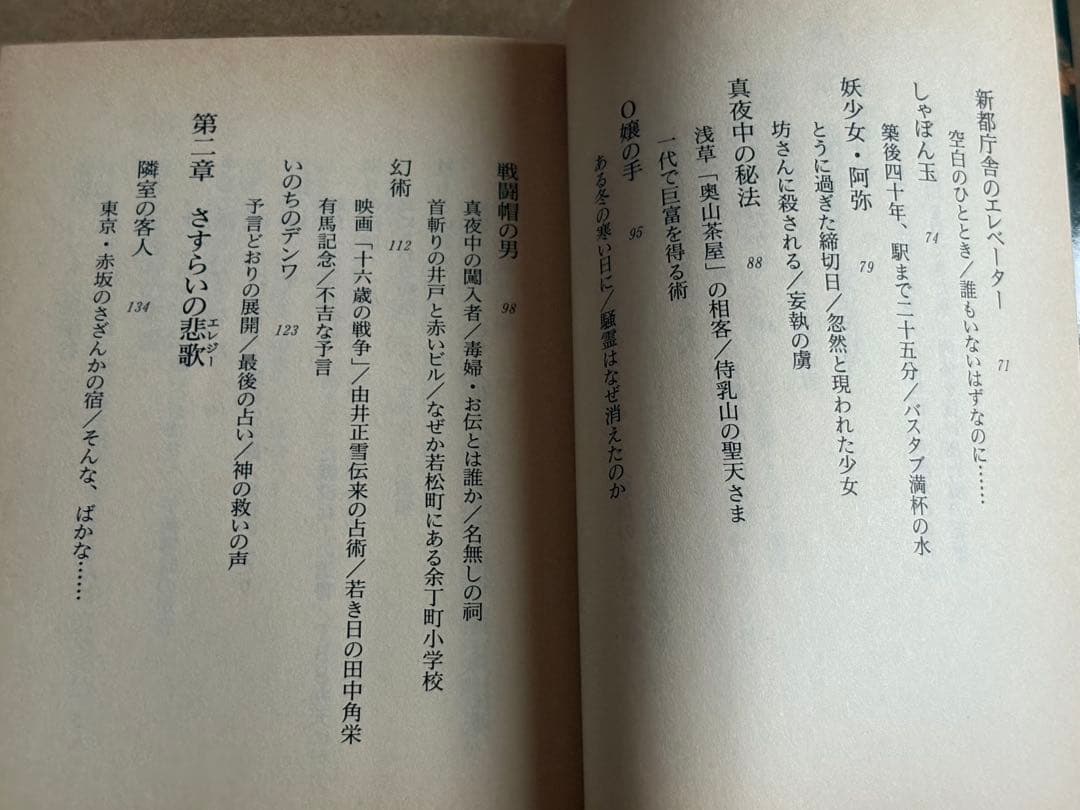 新都庁舎のエレベーター 71
空白のひととき/誰もいないはずなのに……
しゃぼん玉 74
築後四十年、駅まで二十五分/バスタブ満杯の水
妖少女・阿弥 79
とうに過ぎた締切日/忽然と現われた少女
坊さんに殺される/妄執の虜
真夜中の秘法 88
浅草「奥山茶屋」の相客/侍乳山の聖天さま
一代で巨富を得る術
O嬢の手 95
ある冬の寒い日に/騒霊はなぜ消えたのか
戦闘帽の男 98
真夜中の闖入者/毒婦・お伝とは誰か/名無しの祠
首斬りの井戸と赤いビル/なぜか若松町にある余丁町小学校
幻術 112
映画「十六歳の戦争」/由井正雪伝来の占術/若き日の田中角栄
有馬記念/不吉な予言
いのちのデンワ 123
予言どおりの展開/最後の占い/神の救いの声
第二章 さすらいの悲歌
エレジー
隣室の客人 134
東京・赤坂のさざんかの宿/そんな、ばかな……